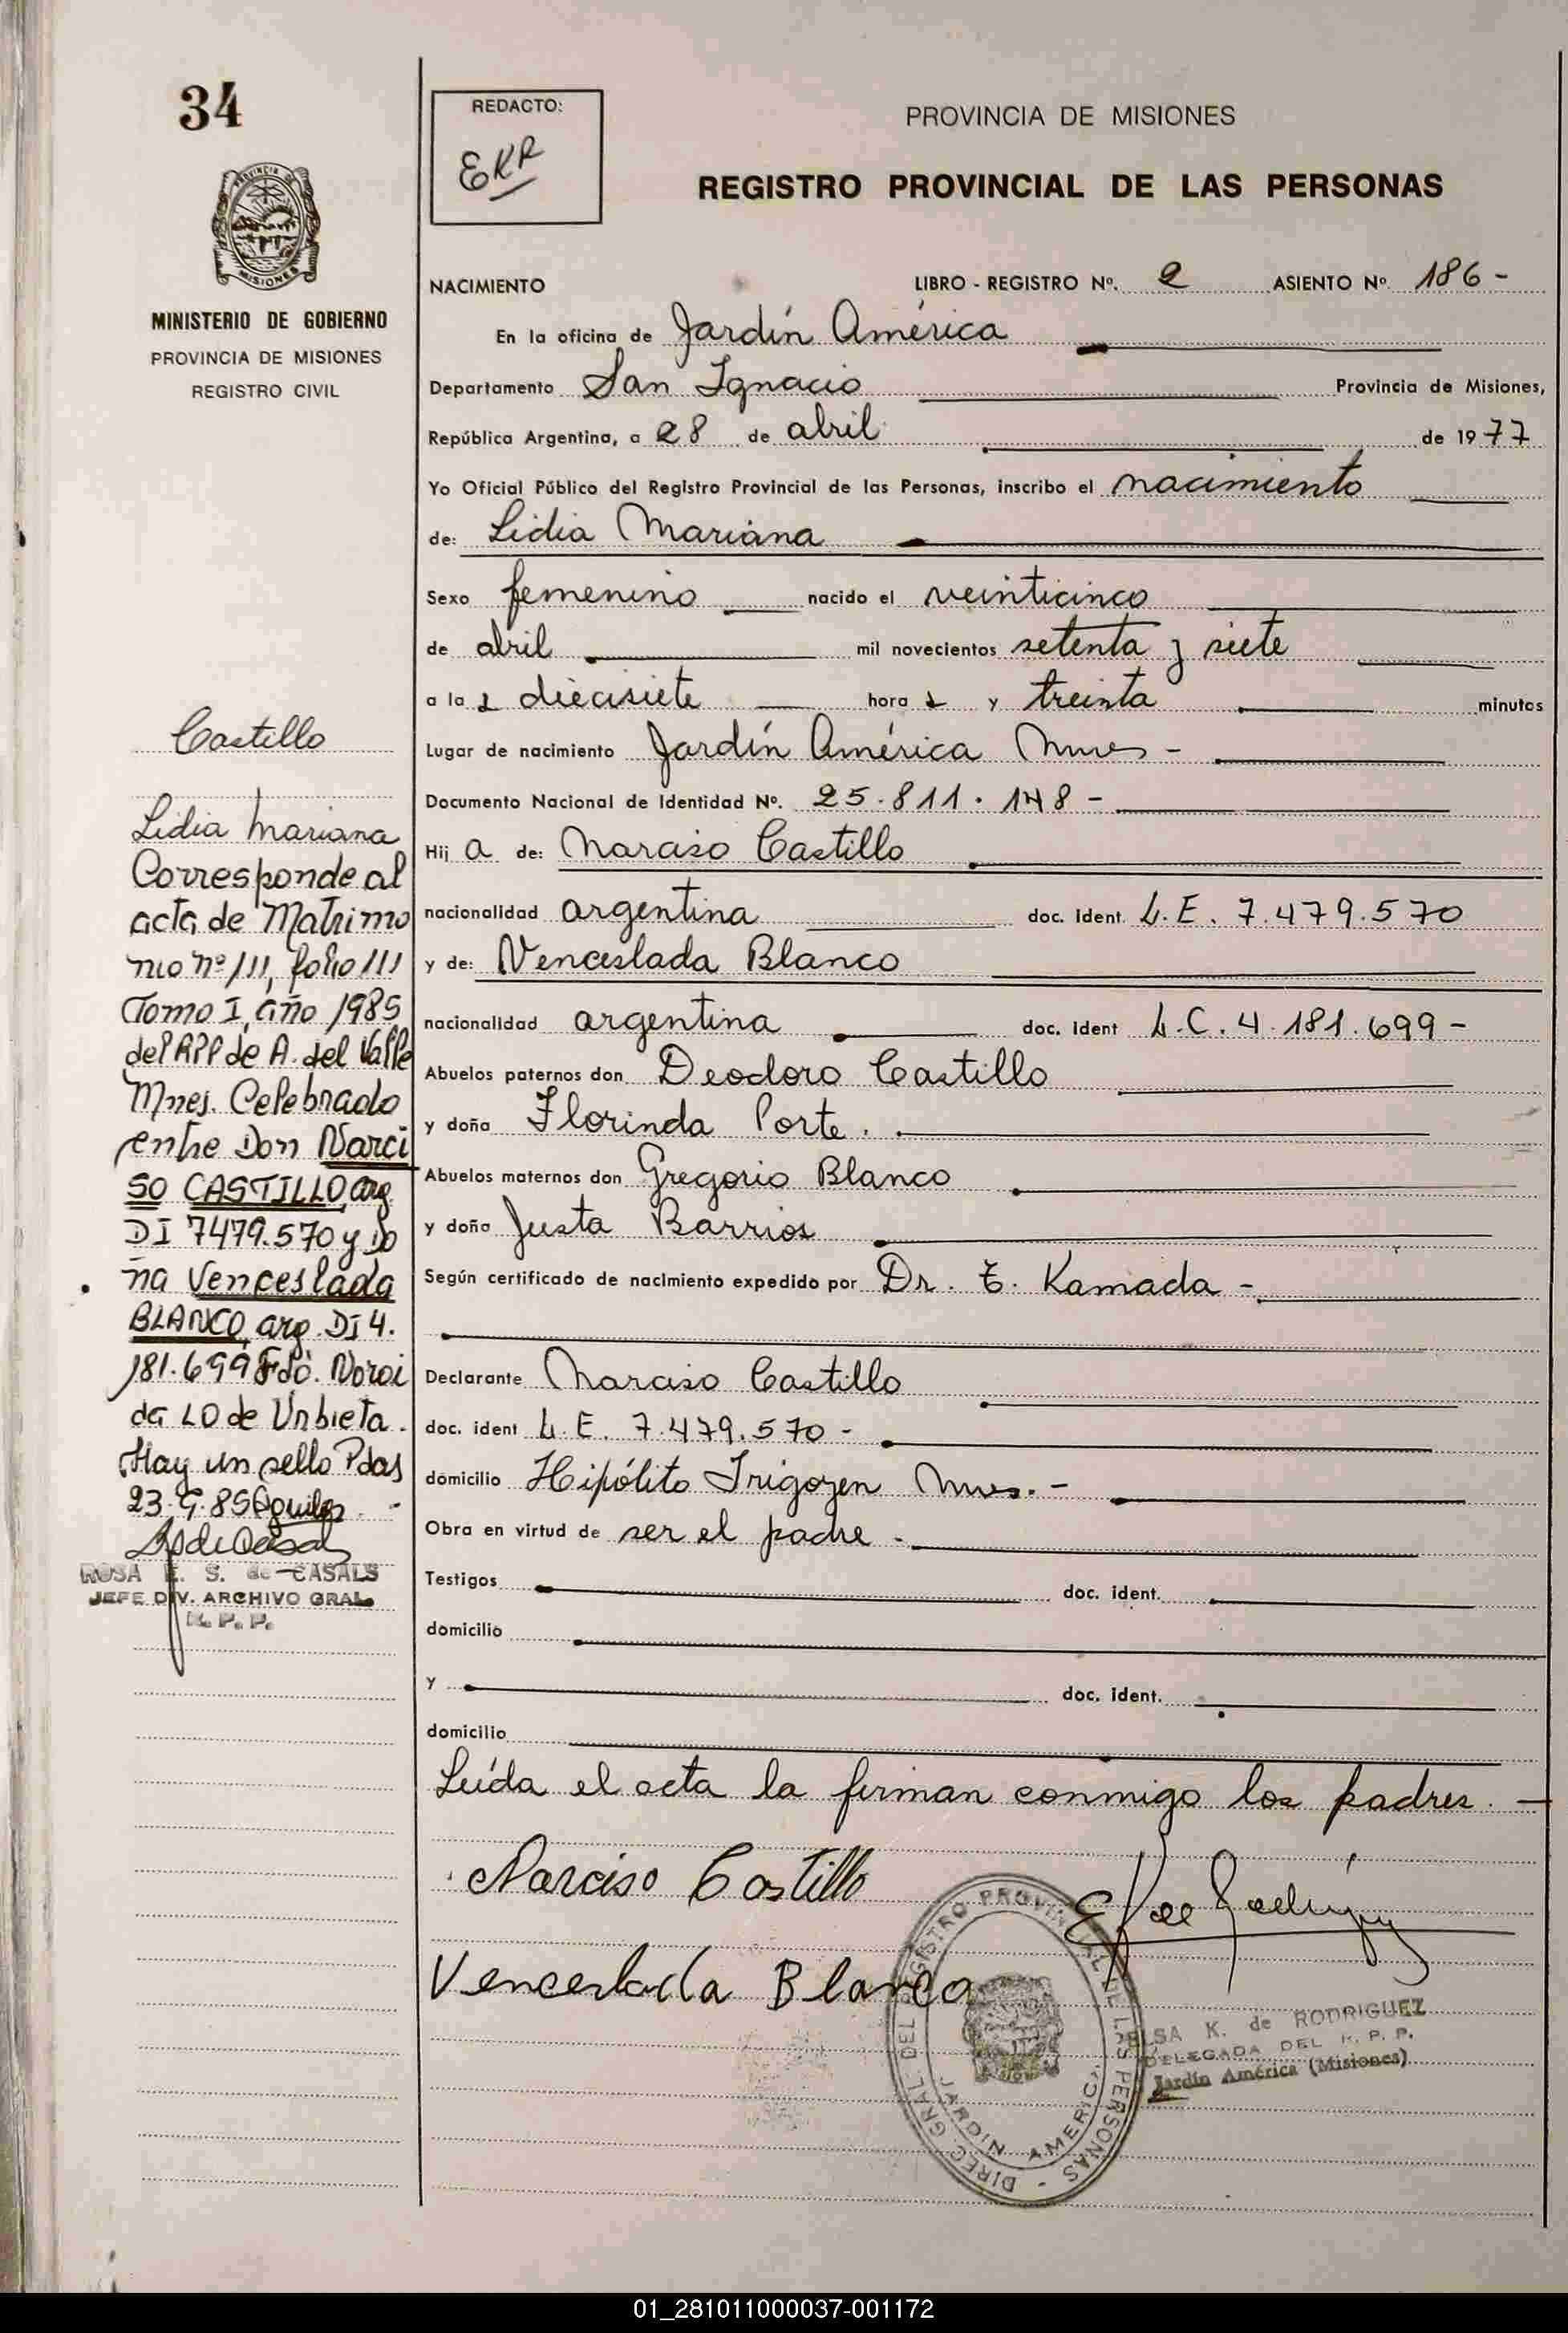 34
REDACTO:
EKR
PROVINCIA DE MISIONES
REGISTRO PROVINCIAL DE LAS PERSONAS
MINISTERIO DE GOBIERNO
PROVINCIA DE MISIONES
REGISTRO CIVIL
NACIMIENTO LIBRO - REGISTRO Nº. 2 ASIENTO Nº. 186 -
En la oficina de Jardín América
Departamento San Ignacio Provincia de Misiones,
República Argentina, a 28 de abril de 1977
Yo Oficial Público del Registro Provincial de las Personas, inscribo el nacimiento
de: Lidia Mariana
Sexo femenino nacido el veinticinco
de abril mil novecientos setenta y siete
a la s diecisiete hora s y treinta minutos
Lugar de nacimiento Jardín América Mnes -
Documento Nacional de Identidad Nº. 25.811.148 -
Hij a de: Narciso Castillo
nacionalidad argentina doc. Ident. L.E. 7.479.570
y de: Venceslada Blanco
nacionalidad argentina doc. Ident L.C. 4.181.699 -
Abuelos paternos don Deodoro Castillo
y doña Florinda Porte.
Abuelos maternos don Gregorio Blanco
y doña Justa Barrios
Según certificado de nacimiento expedido por Dr. T. Kamada -
Declarante Narciso Castillo
doc. ident L.E. 7.479.570 -
domicilio Hipólito Irigoyen Mnes. -
Obra en virtud de ser el padre -
Testigos doc. ident.
domicilio
y doc. ident.
domicilio
Leída el acta la firman conmigo los padres. -
Narciso Castillo
Venceslada Blanco
DIREC. GRAL. DEL REGISTRO PROVINCIAL DE LAS PERSONAS -
JARDIN AMERICA
ELSA K. de RODRIGUEZ
DELEGADA DEL R. P. P.
Jardín América (Misiones)
Castillo
Lidia Mariana
Corresponde al
acta de Matrimo
nio nº 111, folio 111
Tomo I, año 1985
del RPP de A. del Valle
Mnes. Celebrado
entre Don Narci
SO CASTILLO, arg.
DI 7479.570 y Do
ña Venceslada
BLANCO, arg. DI 4.
181.699 Fdo. Noroi
da LO de Urbieta.
Hay un sello Pdas
23-9-85
ROSA E. S. de CASALS
JEFE DIV. ARCHIVO GRAL.
R. P. P.
01_281011000037-001172